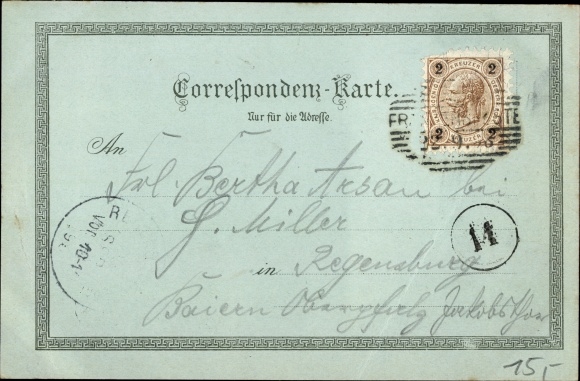 2 KREUZER 2
Correspondenz-Karte.
Nur für die Adresse.
2 KREUZER 2
An
Frl. Bertha Arsan bei
G. Miller
11
in Regensburg
Baiern Oberpfalz Jakobsthor
VOR. 10-1
15,-